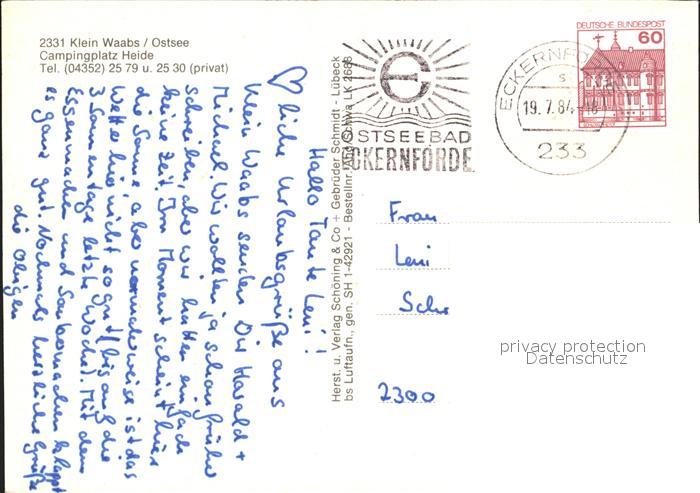 2331 Klein Waabs / Ostsee
Campingplatz Heide
Tel. (04352) 25 79 u. 25 30 (privat)
Hallo Tante Leni!
♡liche Urlaubsgrüße aus
Klein Waabs senden Dir Harald +
Michael. Wir wollten ja schon früher
schreiben, aber wir hatten einfach
keine Zeit. Im Moment scheint hier
die Sonne, aber normalerweise ist das
Wetter hier nicht so gut (bis auf die
3 Sonnentage letzte Woche). Mit dem
Essenmachen und Saubermachen klappt
es ganz gut. Nochmals herzliche Grüße
die Obrigen
Herst. u. Verlag Schöning & Co + Gebrüder Schmidt - Lübeck
bs Luftaufn., gen. SH 1-42921 - Bestellnr. Schwa LK 2668
OSTSEEBAD
ECKERNFÖRDE
ECKERNFÖ
19.7.84-18
233
DEUTSCHE BUNDESPOST
60
Frau
Leni
Sch
2300
privacy protection
Datenschutz